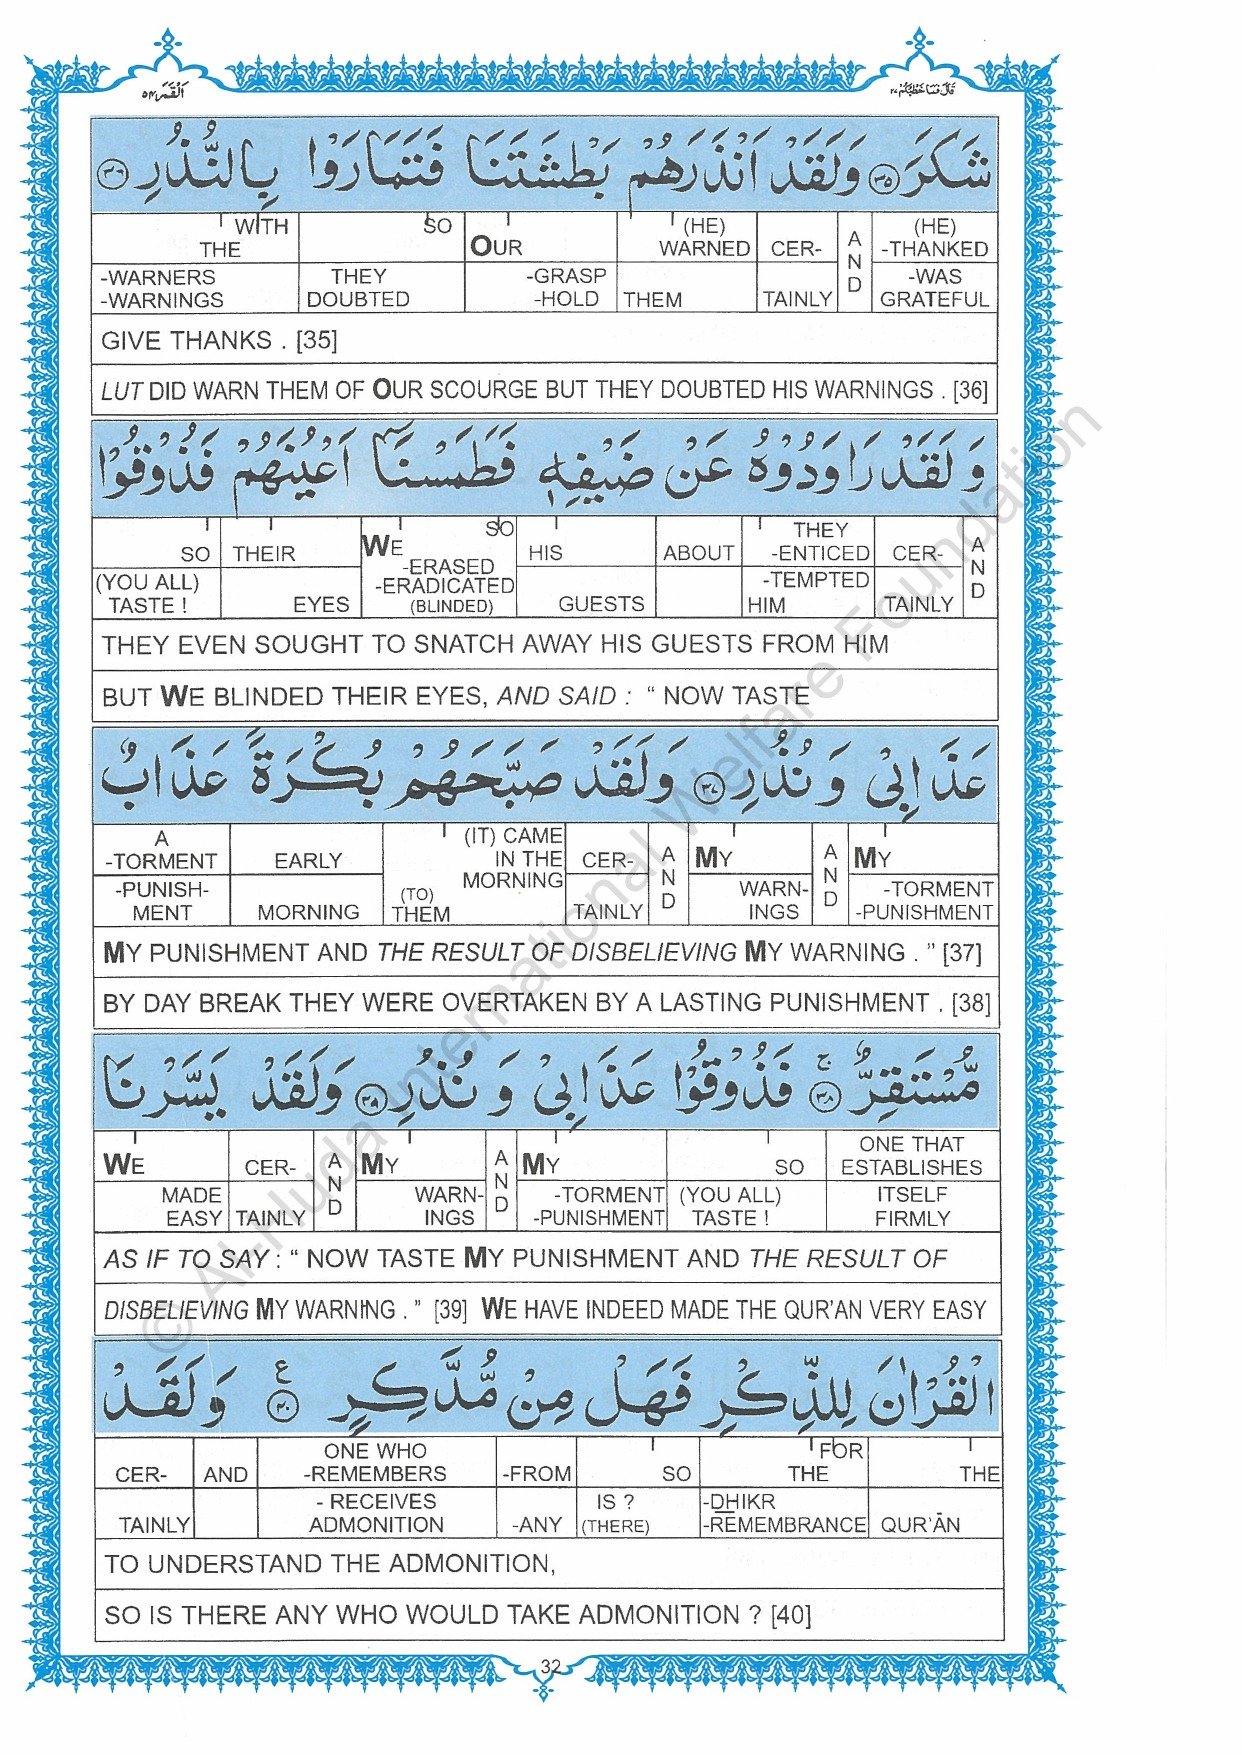 قَالَ فَمَا خَطْبُكُمْ ٢٧
اَلْقَمَر ٥٤
شَكَرَ ﴿٣٥﴾ وَلَقَدْ اَنْذَرَهُمْ بَطْشَتَنَا فَتَمَارَوْا بِالنُّذُرِ ﴿٣٦﴾
WITH THE -WARNERS -WARNINGS | SO THEY DOUBTED | OUR -GRASP -HOLD | (HE) WARNED THEM | CER- TAINLY | AND | (HE) -THANKED -WAS GRATEFUL
GIVE THANKS . [35]
LUT DID WARN THEM OF OUR SCOURGE BUT THEY DOUBTED HIS WARNINGS . [36]
وَلَقَدْ رَاوَدُوْهُ عَنْ ضَيْفِهٖ فَطَمَسْنَاۤ اَعْيُنَهُمْ فَذُوْقُوْا
SO (YOU ALL) TASTE ! | THEIR EYES | SO WE -ERASED -ERADICATED (BLINDED) | HIS GUESTS | ABOUT | THEY -ENTICED -TEMPTED HIM | CER- TAINLY | AND
THEY EVEN SOUGHT TO SNATCH AWAY HIS GUESTS FROM HIM
BUT WE BLINDED THEIR EYES, AND SAID : “ NOW TASTE
عَذَابِيْ وَنُذُرِ ﴿٣٧﴾ وَلَقَدْ صَبَّحَهُمْ بُكْرَةً عَذَابٌ
A -TORMENT -PUNISH- MENT | EARLY MORNING | (IT) CAME IN THE MORNING (TO) THEM | CER- TAINLY | AND | MY WARN- INGS | AND | MY -TORMENT -PUNISHMENT
MY PUNISHMENT AND THE RESULT OF DISBELIEVING MY WARNING . ” [37]
BY DAY BREAK THEY WERE OVERTAKEN BY A LASTING PUNISHMENT . [38]
مُّسْتَقِرٌّ ۚ ﴿٣٨﴾ فَذُوْقُوْا عَذَابِيْ وَنُذُرِ ﴿٣٩﴾ وَلَقَدْ يَسَّرْنَا
WE MADE EASY | CER- TAINLY | AND | MY WARN- INGS | AND | MY -TORMENT -PUNISHMENT | SO (YOU ALL) TASTE ! | ONE THAT ESTABLISHES ITSELF FIRMLY
AS IF TO SAY : “ NOW TASTE MY PUNISHMENT AND THE RESULT OF
DISBELIEVING MY WARNING . ” [39] WE HAVE INDEED MADE THE QUR’AN VERY EASY
الْقُرْاٰنَ لِلذِّكْرِ فَهَلْ مِنْ مُّدَّكِرٍ ﴿٤٠﴾ ع وَلَقَدْ
CER- TAINLY | AND | ONE WHO -REMEMBERS - RECEIVES ADMONITION | -FROM -ANY | SO IS ? (THERE) | FOR THE -DHIKR -REMEMBRANCE | THE QUR’ĀN
TO UNDERSTAND THE ADMONITION,
SO IS THERE ANY WHO WOULD TAKE ADMONITION ? [40]
32
© Al-Huda International Welfare Foundation